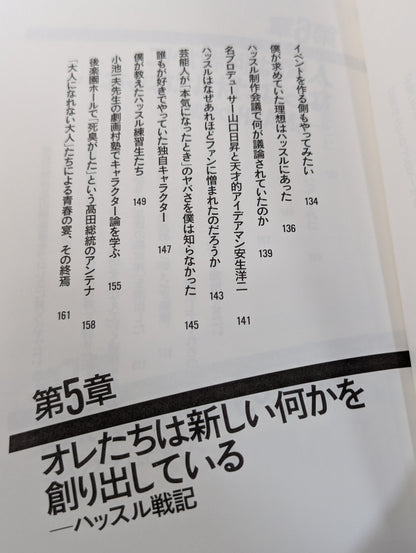 第5章
オレたちは新しい何かを
創り出している
―ハッスル戦記
イベントを作る側もやってみたい 134
僕が求めていた理想はハッスルにあった 136
ハッスル制作会議で何が議論されていたのか 139
名プロデューサー山口日昇と天才的アイデアマン安生洋二 141
ハッスルはなぜあれほどファンに憎まれたのだろうか 143
芸能人が「本気になったとき」のヤバさを僕は知らなかった 145
誰もが好きでやっていた独自キャラクター 147
僕が教えたハッスル練習生たち 149
小池一夫先生の劇画村塾でキャラクター論を学ぶ 155
後楽園ホールで「死臭がした」という髙田総統のアンテナ 158
「大人になれない大人」たちによる青春の宴、その終焉 161